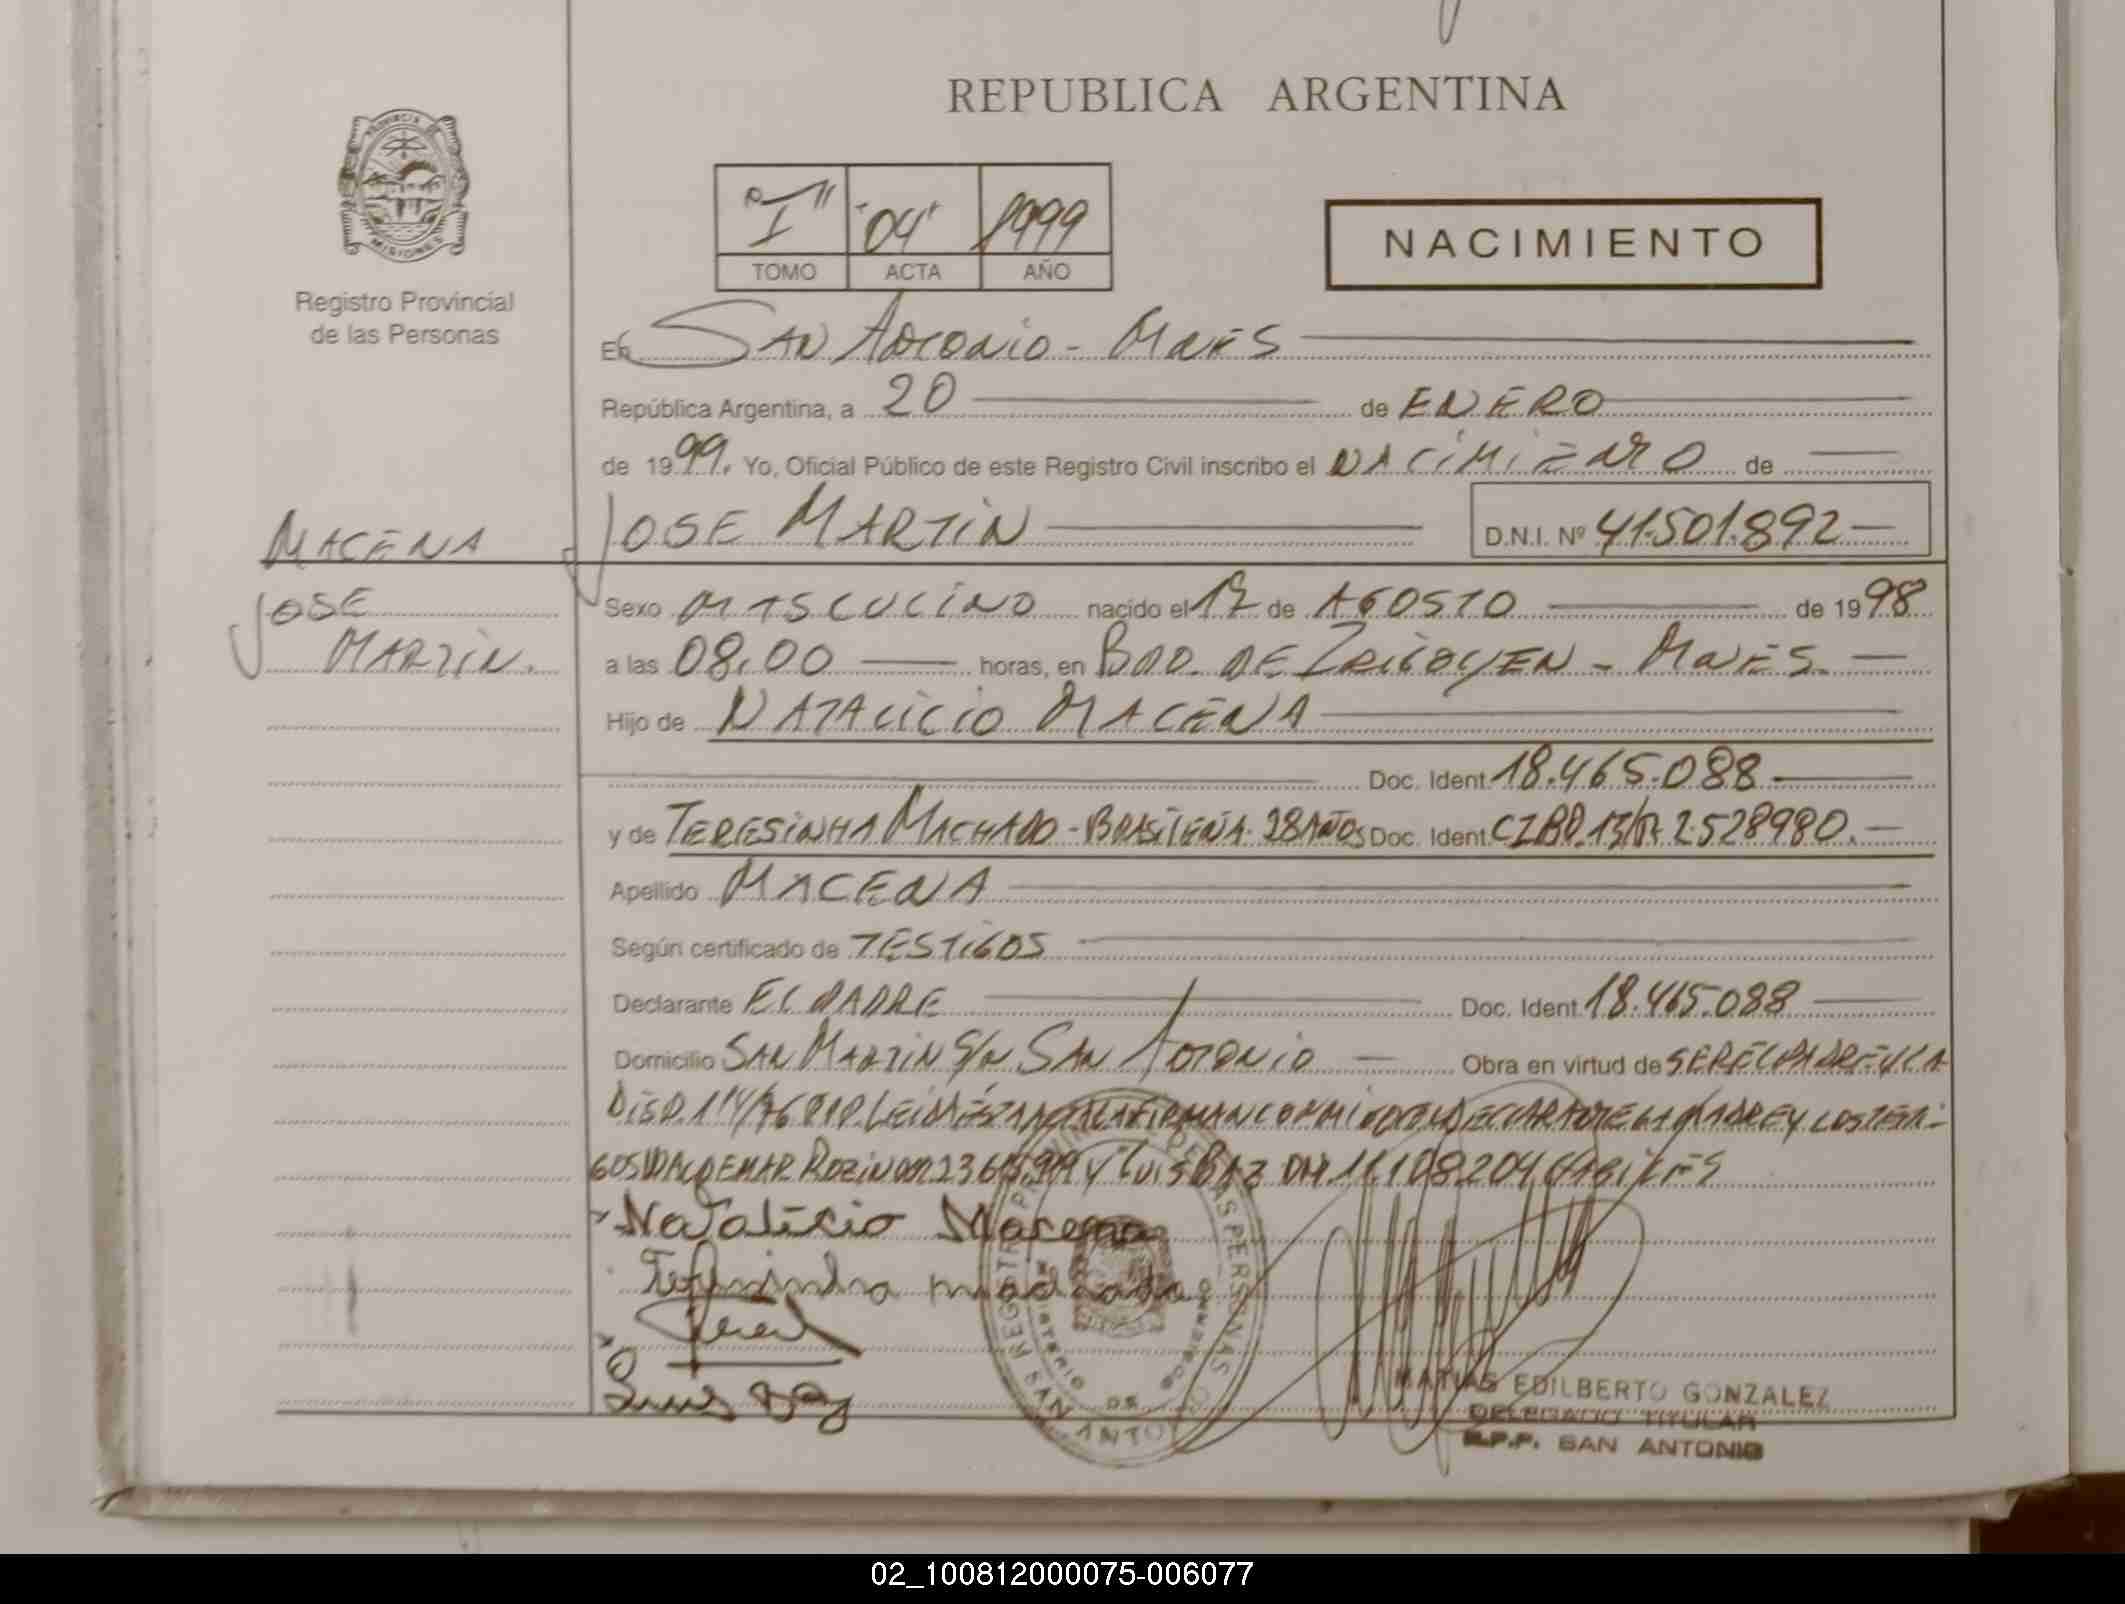 REPUBLICA ARGENTINA
PROVINCIA DE
MISIONES
Registro Provincial
de las Personas
"I" "04" 1999
TOMO ACTA AÑO
NACIMIENTO
En SAN ANTONIO - MNES
República Argentina, a 20 de ENERO
de 1999. Yo, Oficial Público de este Registro Civil inscribo el NACIMIENTO de
JOSE MARTIN D.N.I. Nº 41.501.892
MACENA
JOSE
MARTIN.
Sexo MASCULINO nacido el 17 de AGOSTO de 1998
a las 08,00 horas, en BDO. DE IRIGOYEN - MNES.
Hijo de NATALICIO MACENA
Doc. Ident. 18.465.088
y de TERESINHA MACHADO - BRASILEÑA. 28 AÑOS Doc. Ident. 2.528980.
Apellido MACENA
Según certificado de TESTIGOS
Declarante EL PADRE Doc. Ident. 18.465.088
Domicilio SAN MARTIN S/N SAN ANTONIO Obra en virtud de SER EL PADRE Y LA
DISP. 114/76 LEIDA ESTA ACTA LA FIRMAN CONMIGO EL DECLARANTE LA MADRE Y LOS TESTI-
GOS WALDEMAR Y LUIS BAZ DNI 11.108.204 HABILES
Natalicio Macena
Teresinha machado
Luis Baz
REGISTRO PROVINCIAL DE LAS PERSONAS
MINISTERIO DE GOBIERNO
SAN ANTONIO
MATIAS EDILBERTO GONZALEZ
DELEGADO TITULAR
R.P.P. SAN ANTONIO
02_100812000075-006077